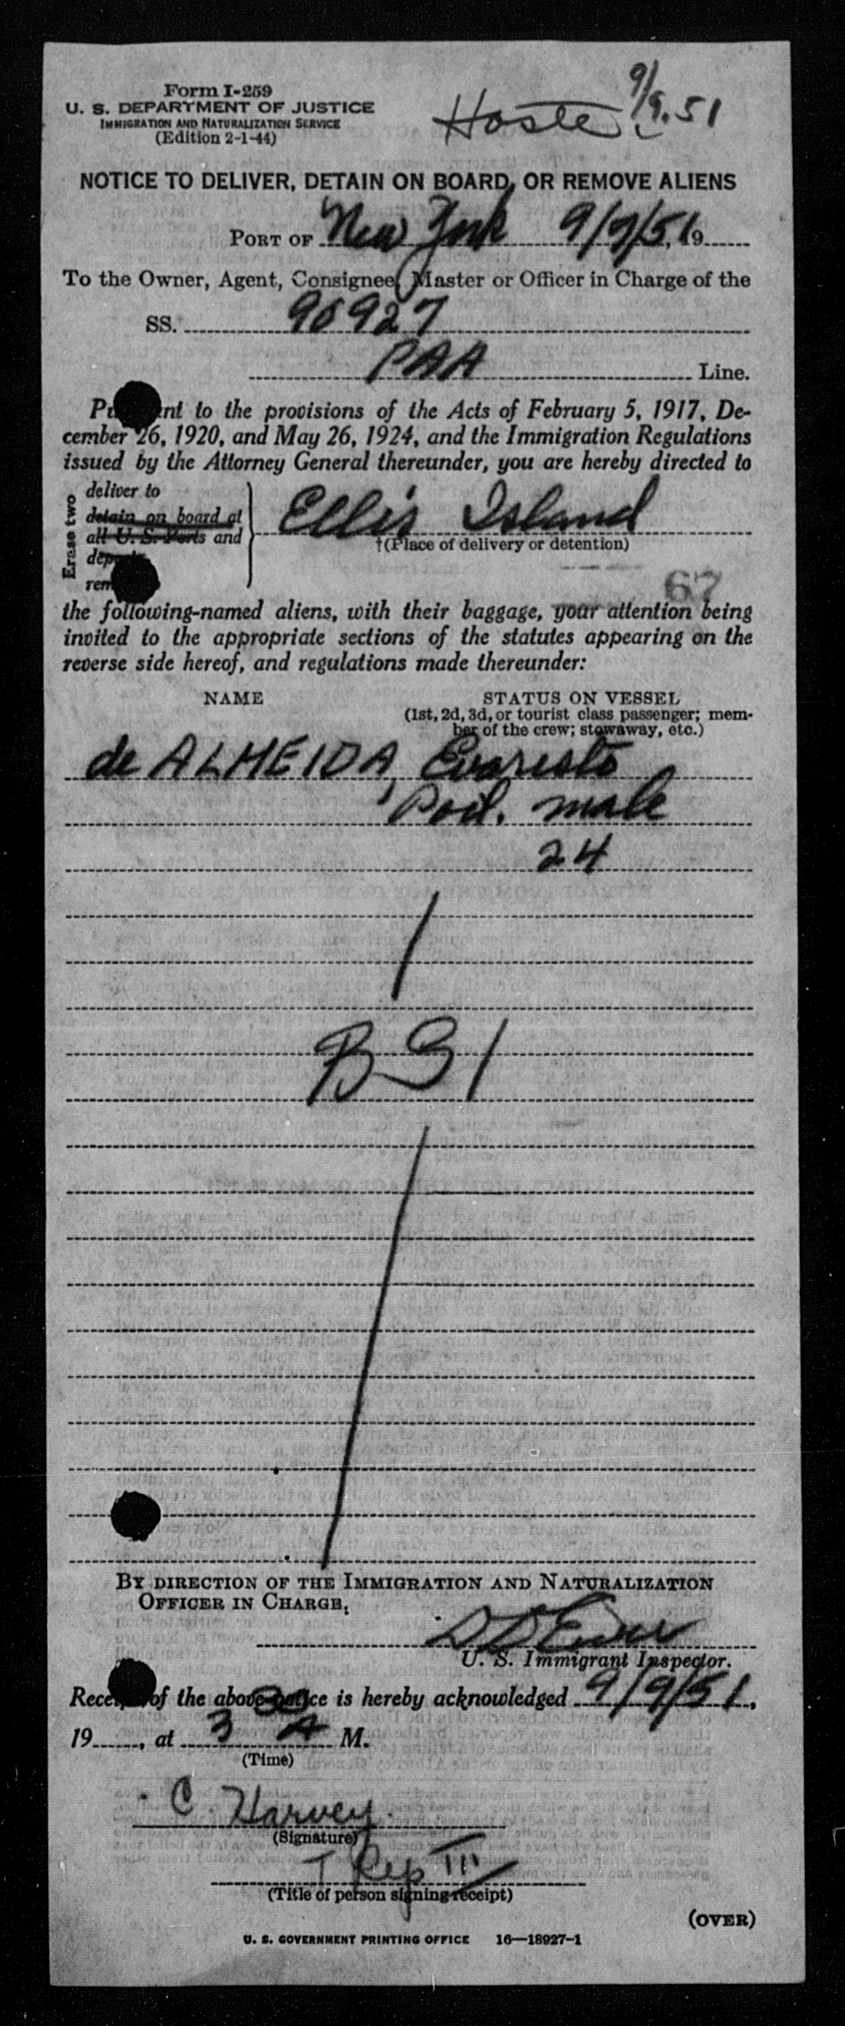 Form I-259
U. S. DEPARTMENT OF JUSTICE
IMMIGRATION AND NATURALIZATION SERVICE
(Edition 2-1-44)
9/9.51
NOTICE TO DELIVER, DETAIN ON BOARD, OR REMOVE ALIENS
PORT OF New York 9/9/51, 19
To the Owner, Agent, Consignee, Master or Officer in Charge of the
SS. 90927
PAA Line.
Pursuant to the provisions of the Acts of February 5, 1917, De-
cember 26, 1920, and May 26, 1924, and the Immigration Regulations
issued by the Attorney General thereunder, you are hereby directed to
Erase two
deliver to
detain on board at
all U. S. Ports and
Ellis Island
†(Place of delivery or detention)
67
the following-named aliens, with their baggage, your attention being
invited to the appropriate sections of the statutes appearing on the
reverse side hereof, and regulations made thereunder:
NAME STATUS ON VESSEL
(1st, 2d, 3d, or tourist class passenger; mem-
ber of the crew; stowaway, etc.)
de ALMEIDA, Evaristo
male
24
BSI
BY DIRECTION OF THE IMMIGRATION AND NATURALIZATION
OFFICER IN CHARGE,
U. S. Immigrant Inspector.
Receipt of the above notice is hereby acknowledged 9/9/51,
19, at 3 30 A M.
(Time)
C. Harvey
(Signature)
T Rep III
(Title of person signing receipt)
(OVER)
U. S. GOVERNMENT PRINTING OFFICE 16—18927-1